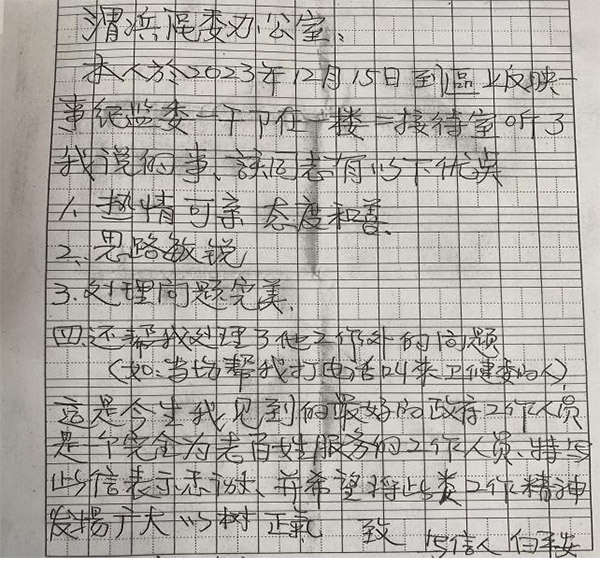 渭滨区委办公室、
本人於2023年12月15日到區上反映一
事纪监委一干下在一楼二接待室听了
我说的事、該同志有以下优
1、热情可亲 态度和善、
2、思路敏锐
3、处理问题完美、
四、还帮我处理了他工作外的问题
(如:当场帮我打电话叫来卫健委的人)、
这是今生我见到的最好的政府工作人员
是个完全为老百姓服务的工作人员、特写
此信表示感谢、并希望将此类工作精神
发揚广大 以树正氣 致 写信人 白